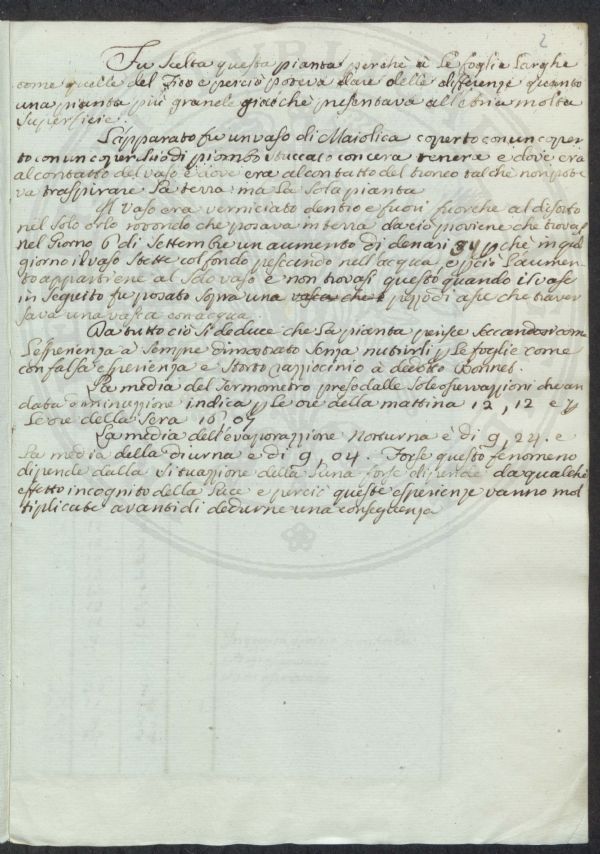 2
Fu scelta questa pianta perchè à le foglie larghe
come quelle del Fico e perciò poteva dare delle differenze quanto
una pianta più grande giacchè presentava all'aria molta
superficie.
L'apparato fu un vaso di Maiolica coperto con un coper
to con un coperchio di piombo stuccato con cera tenera e dove era
al contatto del vaso e dove era al contatto del tronco talche non pote
va traspirare la terra: ma la sola pianta
Il Vaso era verniciato dentro e fuori fuorche al disotto
nel solo orlo rotondo che posava in terra da ciò proviene che trovasi
nel Giorno 6 di Settembre un aumento di denari 84 pchè in quel
giorno il vaso stette col fondo pescando nell'acqua, e pciò l'aumen
to appartiene al solo vaso e non trovasi questo quando il vaso
in seguito fu posato sopra una vasca che pezzo di asse che traver
sava una vasca con acqua.
Da tutto ciò si deduce che la pianta perisse seccandosi come
l'esperienza à sempre dimostrato senza nutrirsi p le foglie come
con falsa esperienza e storto raziocinio à dedotto Bonnet.
La media del Termometro preso dalle sole osservazzioni che an
data a minuzzione indica p le ore della mattina 12, 12 e p
le ore della sera 16, 07
La media dell'evaporazzione Notturna è di 9, 24. e
la media della diurna è di 9, 04. Forse questo fenomeno
dipende dalla situazzione della Luna forse dipende da qualche
effetto incognito della Luce e perciò queste esperienze vanno mol
tiplicate avanti di dedurne una conseguenza